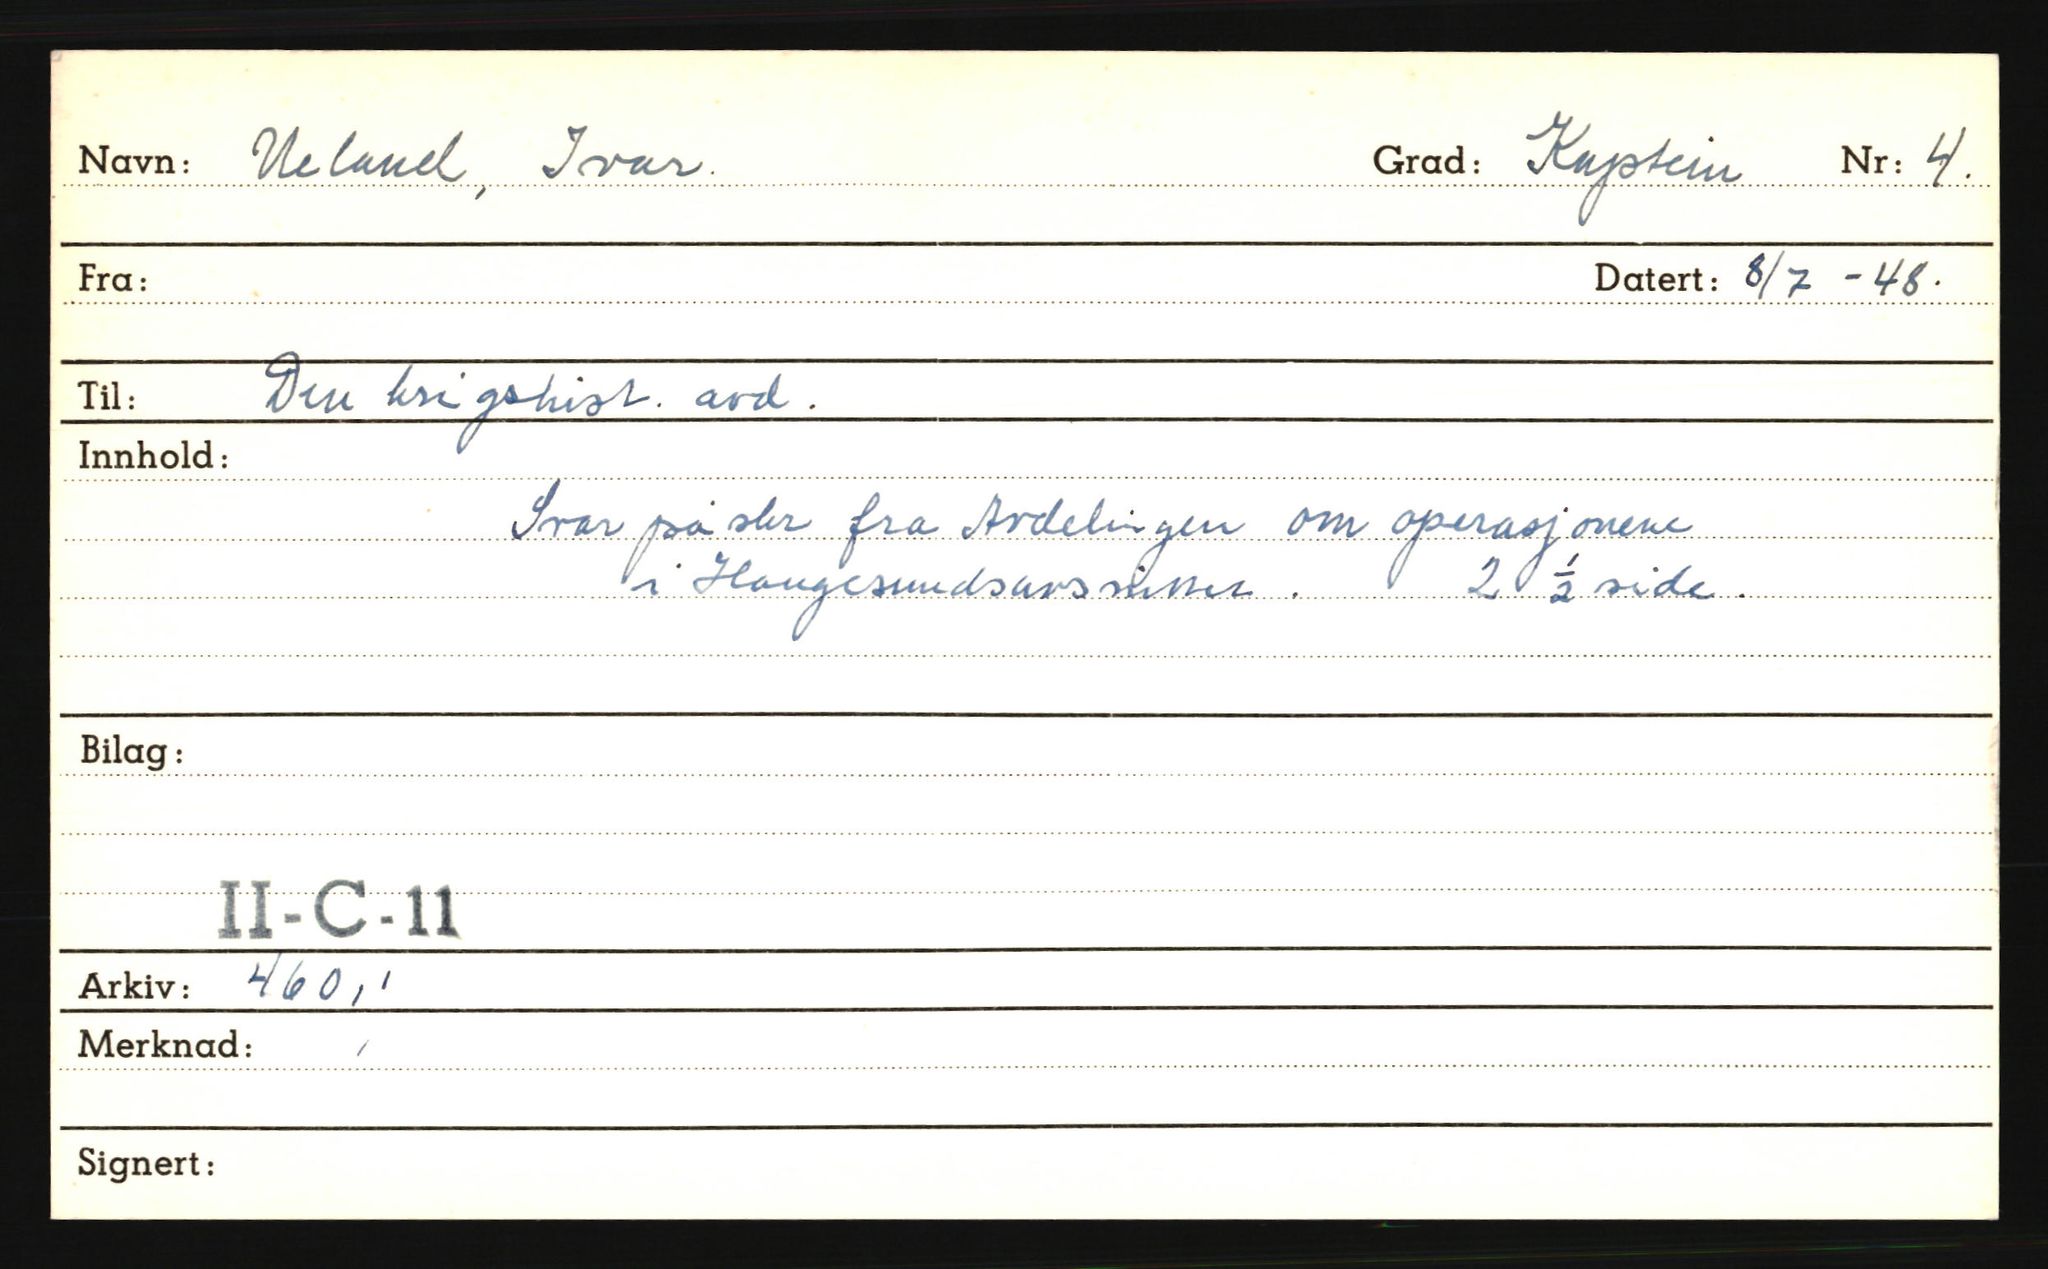 Navn: Ueland, Ivar. Grad: Kaptein Nr: 4.
Fra: Datert: 8/7 - 48.
Til: Den krigshist. avd.
Innhold:
Svar på skr fra Avdelingen om operasjonene
i Haugesundsavsnittet. 2 1/2 side.
Bilag:
II-C-11
Arkiv: 460,1
Merknad:
Signert: